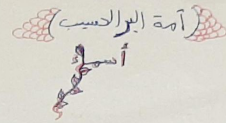 (آمة البر الحسيب)
أسماء